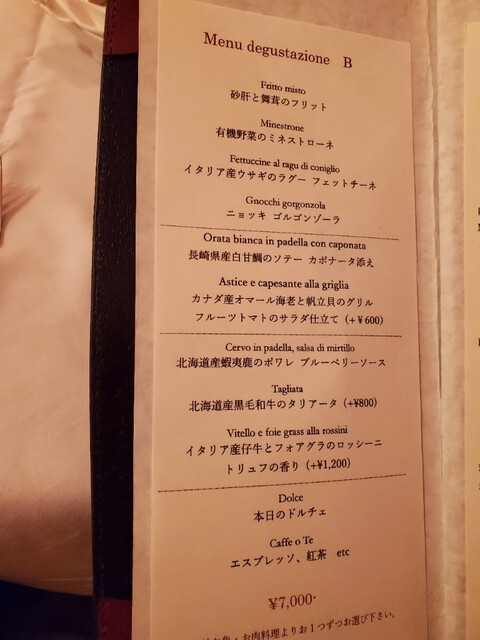 Menu degustazione B
Fritto misto
砂肝と舞茸のフリット
Minestrone
有機野菜のミネストローネ
Fettuccine al ragu di coniglio
イタリア産ウサギのラグー フェットチーネ
Gnocchi gorgonzola
ニョッキ ゴルゴンゾーラ
Orata bianca in padella con caponata
長崎県産白甘鯛のソテー カポナータ添え
Astice e capesante alla griglia
カナダ産オマール海老と帆立貝のグリル
フルーツトマトのサラダ仕立て (+¥600)
Cervo in padella, salsa di mirtillo
北海道産蝦夷鹿のポワレ ブルーベリーソース
Tagliata
北海道産黒毛和牛のタリアータ (+¥800)
Vitello e foie grass alla rossini
イタリア産仔牛とフォアグラのロッシーニ
トリュフの香り (+¥1,200)
Dolce
本日のドルチェ
Caffe o Te
エスプレッソ、紅茶 etc
¥7,000-
お肉料理よりお1つずつお選び下さい。